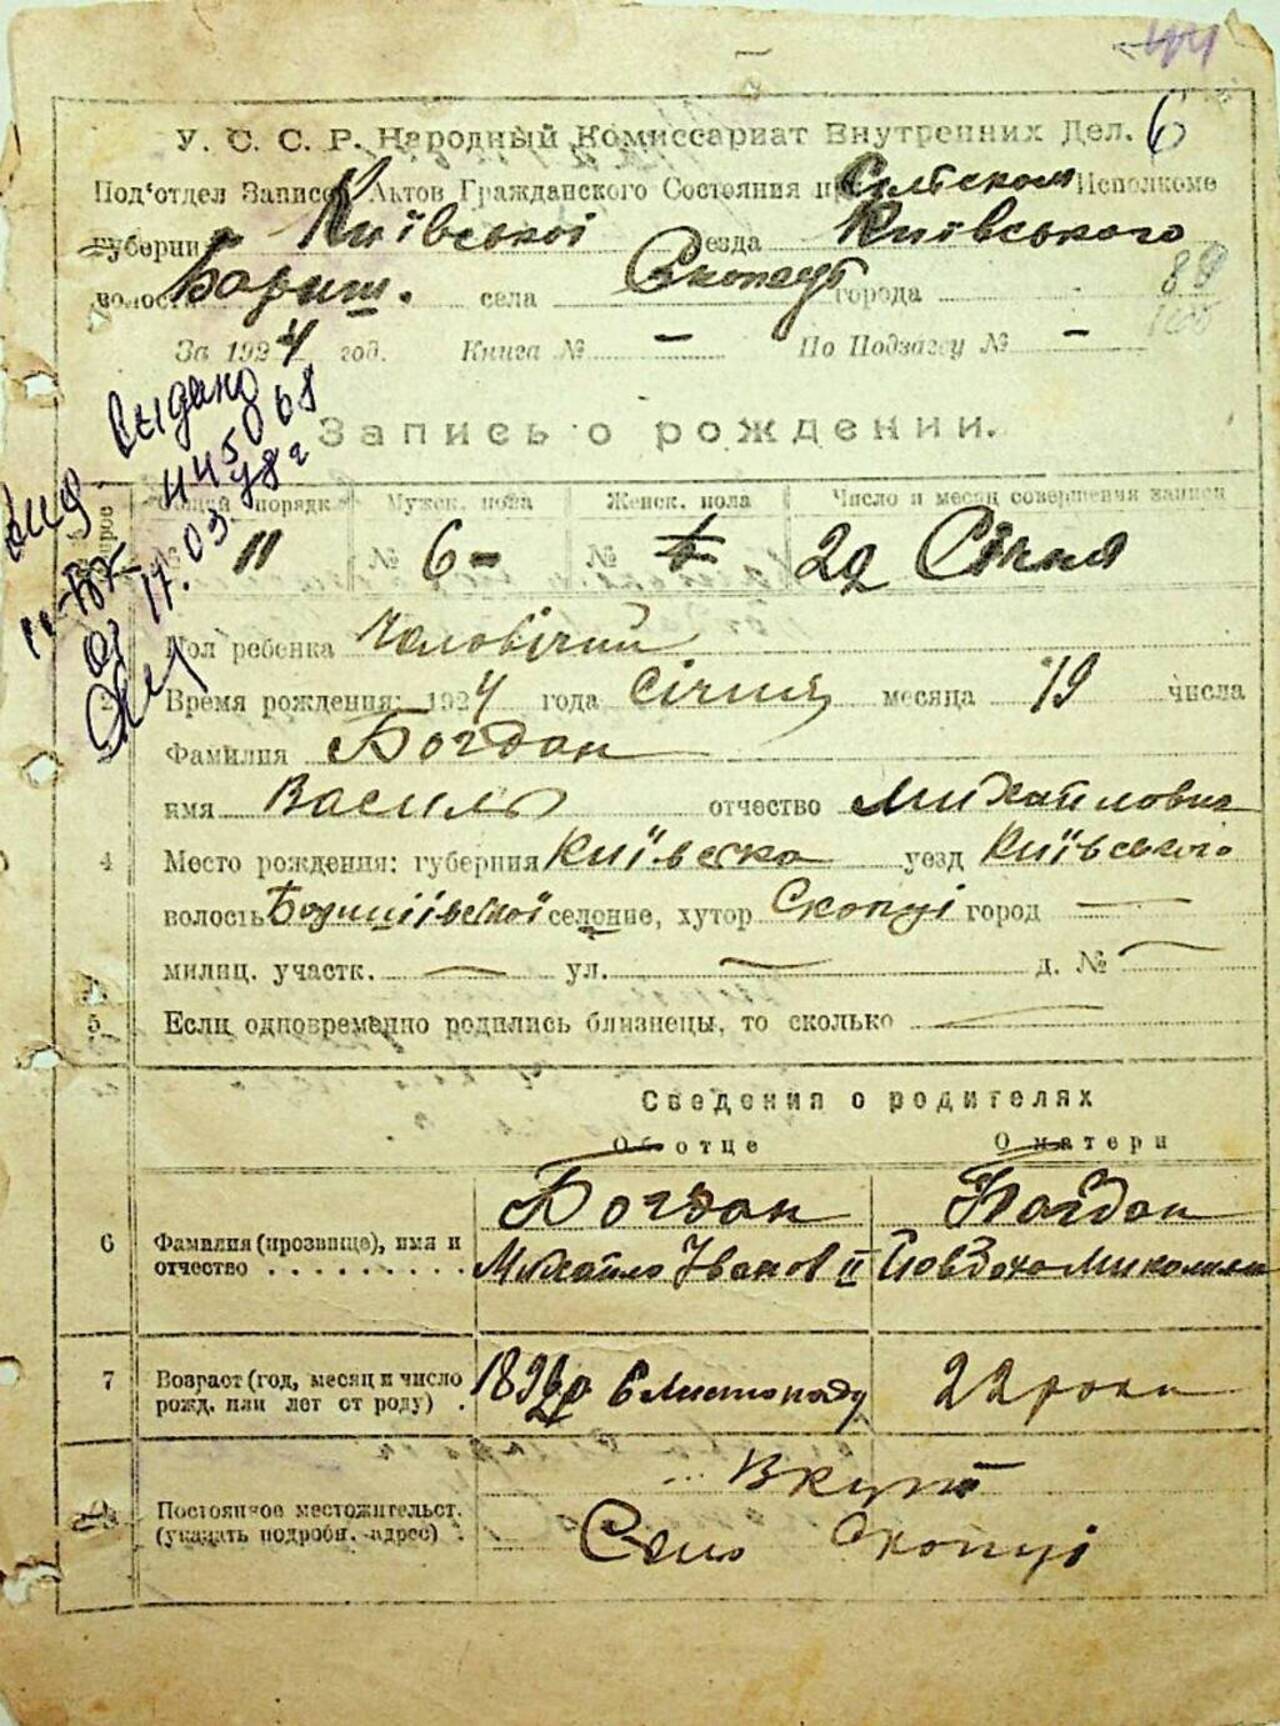 У. С. С. Р. Народный Комиссариат Внутренних Дел. 6
Под'отдел Записей Актов Гражданского Состояния при Сельском Исполкоме
губернии Київської уезда Київського
волости Бориш. села Скопців города 89
За 1924 год. Книга № — По Подзагсу № —
Выдано
Запись о рождении.
Общий порядк. Мужск. пола Женск. пола Число и месяц совершения записи
№ 11 № 6 - № 29 Січня
17.03.48 г
Пол ребенка Чоловічий
Время рождения: 1924 года Січня месяца 19 числа
Фамилия Богдан
имя Василь отчество Михайлович
4 Место рождения: губерния Київська уезд Київського
волость селение, хутор Скопці город —
милиц. участк. — ул. — д. № —
5 Если одновременно родились близнецы, то сколько —
Сведения о родителях
Об отце О матери
6 Фамилия (прозвище), имя и отчество . . . . . . . . . Богдан Михайло Іванов II Богдан Йовдоха Миколаєв
7 Возраст (год, месяц и число рожд. или лет от роду) . 6 Листопаду 22 роки
Постоянное местожительст. (указать подробн. адрес) . Вкупі
Село Скопці